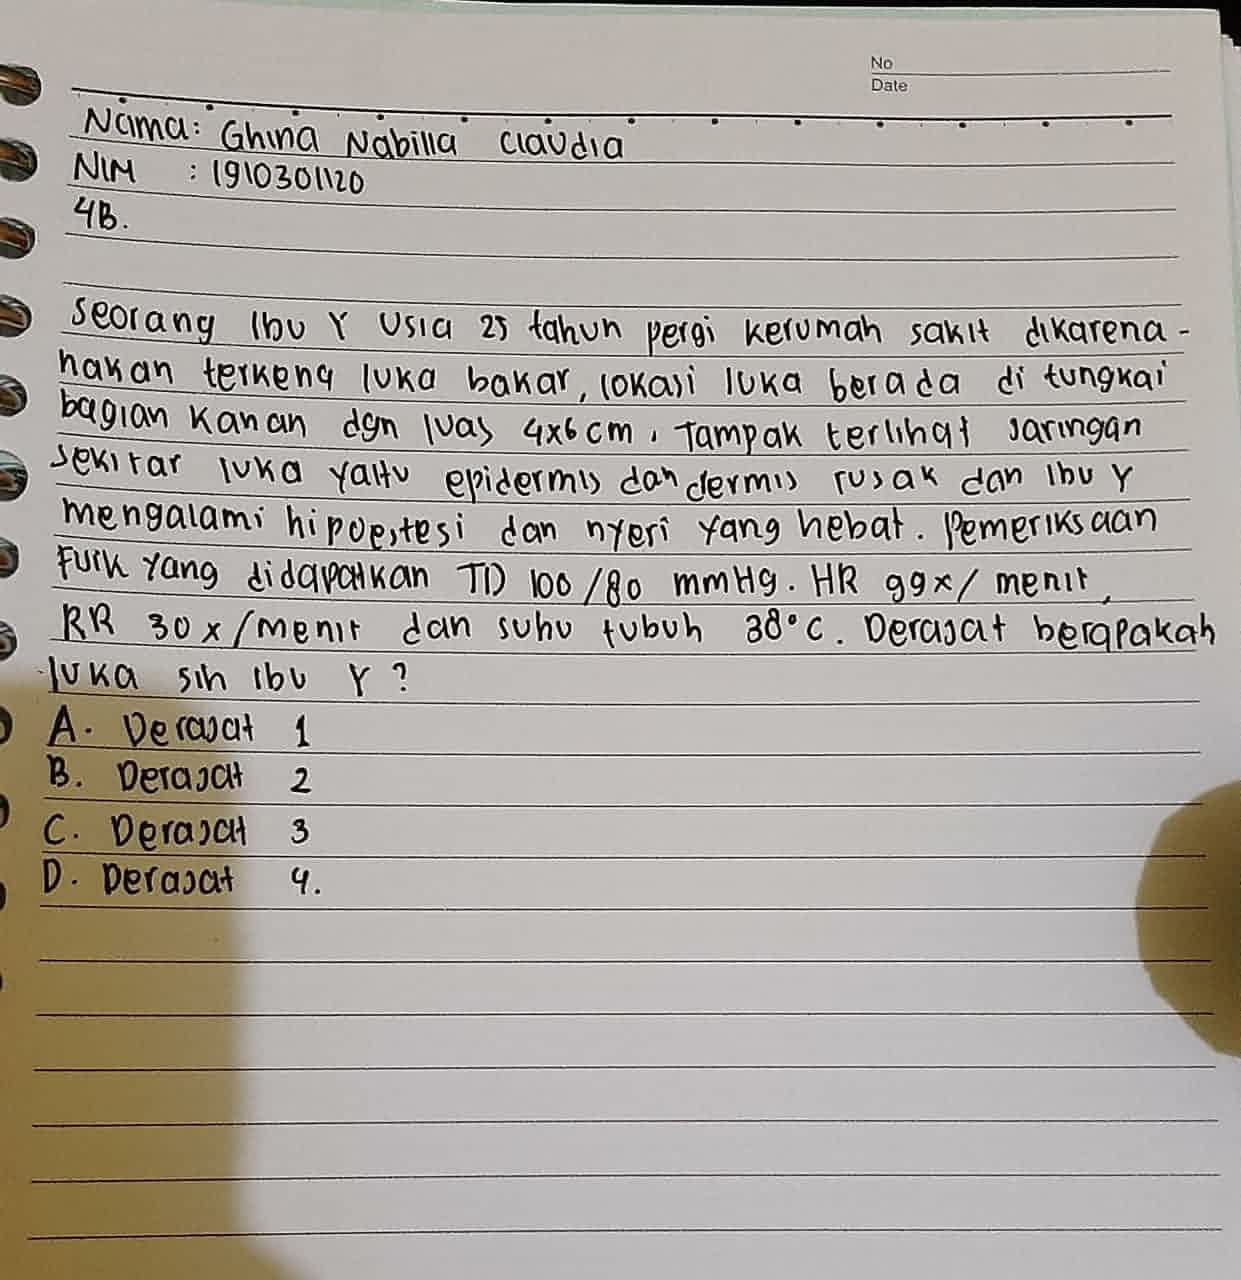 No
Date
Nama: Ghina Nabilla Claudia
NIM : 1910301120
4B.
Seorang Ibu Y Usia 25 tahun pergi kerumah sakit dikarena-
hakan terkena luka bakar, lokasi luka berada di tungkai
bagian Kanan dgn luas 4x6 cm. Tampak terlihat Jaringan
Sekitar luka yaitu epidermis dan dermis rusak dan Ibu Y
mengalami hipoestesi dan nyeri yang hebat. Pemeriksaan
Fisik yang didapatkan TD 100/80 mmHg. HR 99x/menit,
RR 30x/menit dan suhu tubuh 38°C. Derajat berapakah
luka sih ibu Y?
A. Derajat 1
B. Derajat 2
C. Derajat 3
D. Derajat 4.